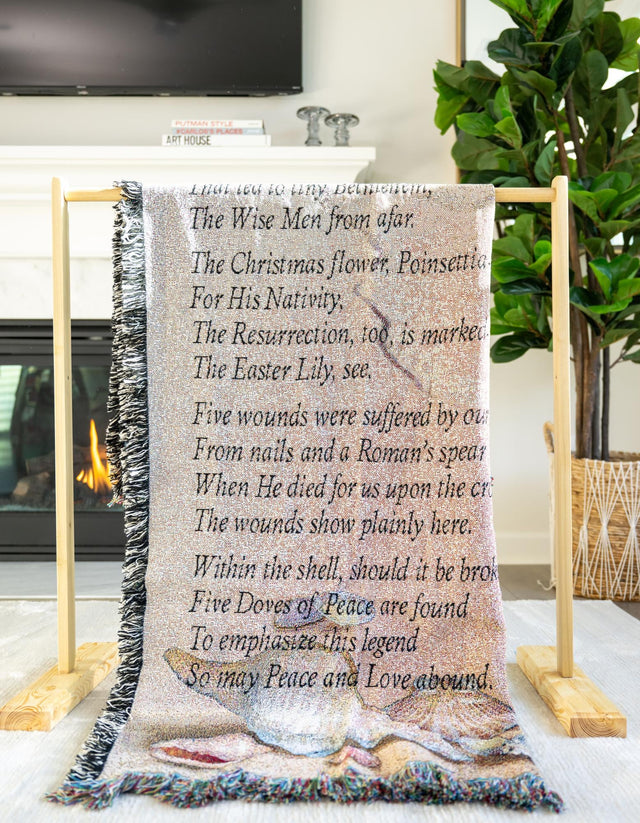 PUTMAN STYLE
CARLOS'S PLACES
ART HOUSE
That led to tiny Bethlehem,
The Wise Men from afar.
The Christmas flower, Poinsettia
For His Nativity.
The Resurrection, too, is marked
The Easter Lily, see.
Five wounds were suffered by our
From nails and a Roman's spear
When He died for us upon the
The wounds show plainly here.
Within the shell, should it be brok
Five Doves of Peace are found
To emphasize this legend
So may Peace and Love abound.